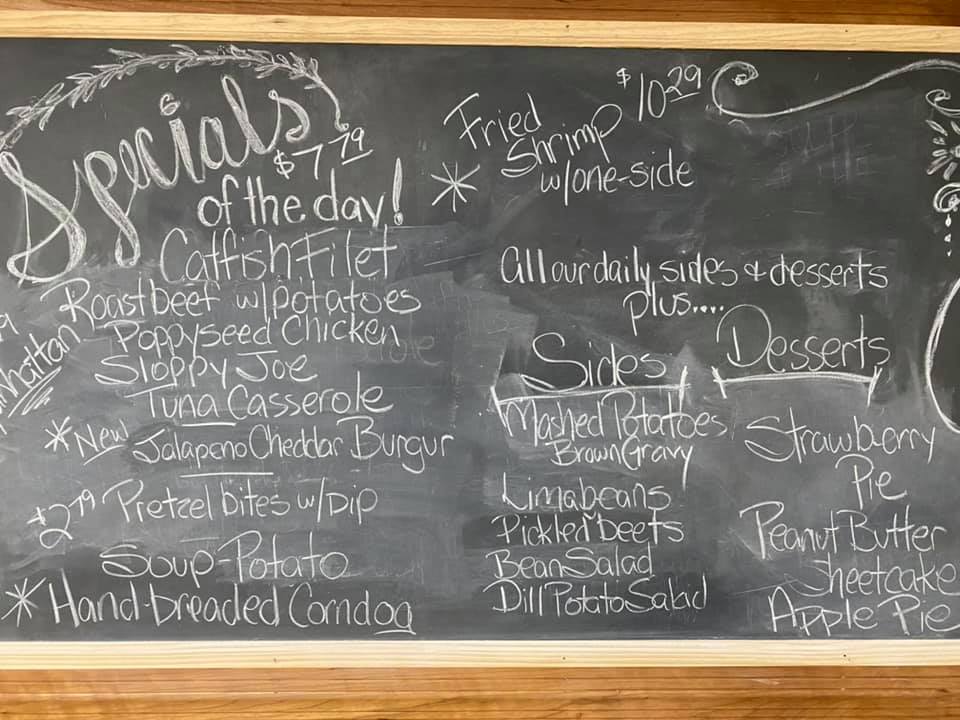 Specials
$7.79
of the day!
Catfish Filet
Roast beef w/potatoes
Poppyseed Chicken
Sloppy Joe
Tuna Casserole
*New Jalapeno Cheddar Burgur
$2.79 Pretzel bites w/Dip
Soup-Potato
* Hand-breaded Corndog
* Fried Shrimp $10.29
w/one-side
all our daily sides & desserts
plus....
Sides
Mashed Potatoes
Brown Gravy
Limabeans
Pickled beets
Bean Salad
Dill Potato Salad
Desserts
Strawberry
Pie
Peanut Butter
Sheetcake
Apple Pie